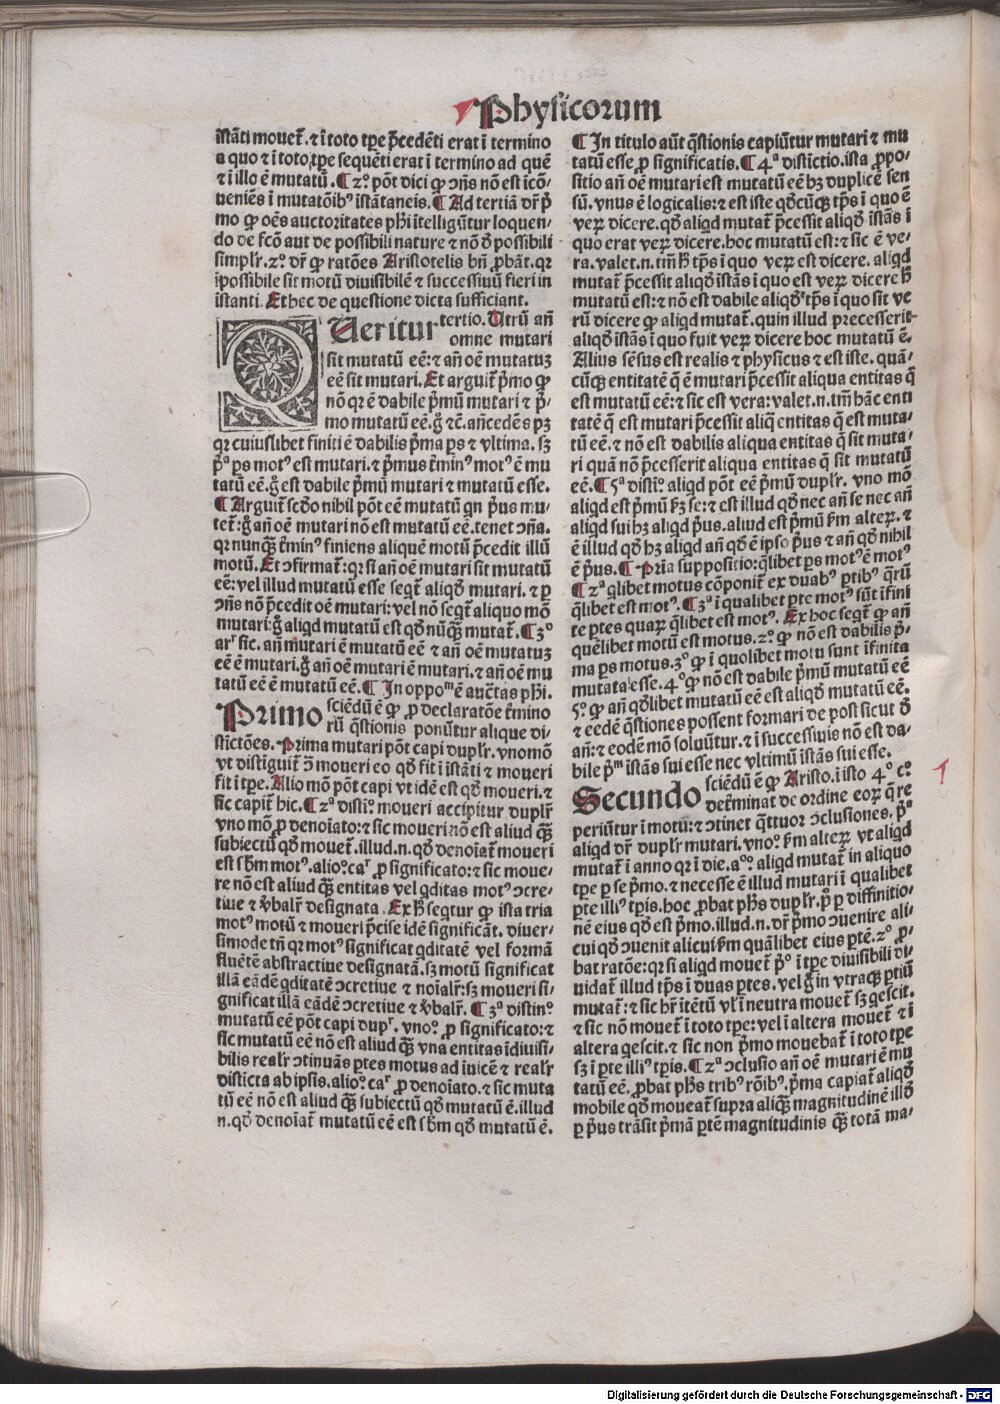 Physicorum
īstāti mouet̄. ⁊ ī toto tꝑe p̄cedēti erat ī termino
a quo ⁊ ī toto tꝑe sequēti erat ī termino ad quē
⁊ ī illo ē mutatū. ¶ 2º. pōt dici ꝙ ꝯñs nō est icō⸗
ueniēs ī mutatōibꝰ īstātaneis. ¶ Ad tertiā dr̄ p̄
mo ꝙ oēs auctoritates phī ītelligūtur loquen⸗
do de fcō aut de possibili nature ⁊ nō ð possibili
simplr̄. 2º. dr̄ ꝙ ratōes Aristotelis bñ ꝓbāt. qr
īpossibile sit motū diuisibilē ⁊ successiuū fieri in
istanti. Et hec de questione dicta sufficiant.
Queritur tertio. Utrū añ
omne mutari
sit mutatū eē: ⁊ añ oē mutatuꝫ
eē sit mutari. Et arguit̄ p̄mo ꝙ
nō qr ē dabile p̄mū mutari ⁊ p̄⸗
mo mutatū eē. g̊ ⁊c̄. añcedēs pꝫ
qr cuiuslibet finiti ē dabilis p̄ma ps ⁊ vltima. sꝫ
p̄ª ps motꝰ est mutari. ⁊ p̄mus t̄minꝰ motꝰ ē mu
tatū eē. g̊ est dabile p̄mū mutari ⁊ mutatū esse.
¶ Arguit̄ scðo nihil pōt eē mutatū qn p̄us mu⸗
tet̄: g̊ añ oē mutari nō est mutatū eē. tenet ꝯña.
qr nunqꝫ̄ t̄minꝰ finiens aliquē motū p̄cedit illū
motū. Et ꝯfirmat̄: qr si añ oē mutari sit mutatū
eē: vel illud mutatū esse seqt̄ aliqð mutari. ⁊ ꝑ
ꝯñs nō p̄cedit oē mutari: vel nō seqt̄ aliquo mō
mutari: g̊ aliqd mutatū est qð nūqꝫ̄ mutat̄. ¶ 3º
arʳ sic. añ mutari ē mutatū eē ⁊ añ oē mutatuꝫ
eē ē mutari. g̊ añ oē mutari ē mutari. ⁊ añ oē mu
tatū eē ē mutatū eē. ¶ In oppoᵐ ē auc̄tas phī.
Primo sciēdū ē ꝙ ꝓ declaratōe t̄mino
rū q̄stionis ponūtur alique di⸗
stīctōes. Prima mutari pōt capi duplr̄. vno mō
vt distīguit̄ ꝯ̄ moueri eo qð fit ī īstāti ⁊ moueri
fit ī tꝑe. Alio mō pōt capi vt idē est qð moueri. ⁊
sic capit̄ hic. ¶ 2ª distīº. moueri accipitur duplr̄
vno mō ꝓ denoīato: ⁊ sic moueri nō est aliud qꝫ̄
subiectū qð mouet̄. illud. n. qð denoīat̄ moueri
est sꝫm motꝰ. alioº. caʳ ꝓ significato: ⁊ sic moue⸗
re nō est aliud qꝫ̄ entitas vel qditas motꝰ ꝯcre⸗
tiue ⁊ v̄balr̄ designata. Ex ℏ seqtur ꝙ ista tria
motꝰ motū ⁊ moueri p̄cise idē significāt. diuer⸗
simode tñ qr motꝰ significat qditatē vel formā
fluētē abstractiue designatā. sꝫ motū significat
illā eādē qditatē ꝯcretiue ⁊ noīalr̄: sꝫ moueri si⸗
gnificat illā eādē ꝯcretiue ⁊ v̄balr̄. ¶ 3ª distinº.
mutatū eē pōt capi dupʳ. vnoº. ꝓ significato: ⁊
sic mutatū eē nō est aliud qꝫ̄ vna entitas īdiuisi⸗
bilis realr̄ ꝯtinuās ꝑtes motus ad īuicē ⁊ realr̄
distīcta ab ipsis. alioº. caʳ ꝓ denoīato. ⁊ sic muta
tū eē nō est aliud qꝫ̄ subiectū qð mutatū ē. illud
n. qð denoīat̄ mutatū eē est sꝫm qð mutatū ē.
¶ In titulo aūt q̄stionis capiūtur mutari ⁊ mu
tatū esse ꝓ significatis. ¶ 4ª distīctio. ista ꝓpo⸗
sitio añ oē mutari est mutatū eē hꝫ duplicē sen
sū. vnus ē logicalis: ⁊ est iste qðcūqꝫ tp̄s ī quo ē
veꝝ dicere. qð aliqd mutat̄ p̄cessit aliqð īstās ī
quo erat veꝝ dicere. hoc mutatū est: ⁊ sic ē ve⸗
ra. valet. n. tm̄ ℏ tp̄s ī quo veꝝ est dicere. aliqd
mutat̄ p̄cessit aliqð īstās ī quo est veꝝ dicere ℏ
mutatū est: ⁊ nō est dabile aliqð tp̄s ī quo sit ve
rū dicere ꝙ aliqd mutat̄. quin illud precesserit
aliqð īstās ī quo fuit veꝝ dicere hoc mutatū ē.
Alius sēsus est realis ⁊ physicus ⁊ est iste. quā⸗
cūqꝫ entitatē q̄ ē mutari p̄cessit aliqua entitas q̄
est mutatū eē: ⁊ sic est vera: valet. n. tm̄ hāc enti
tatē q̄ est mutari p̄cessit aliq̄ entitas q̄ est muta⸗
tū eē. ⁊ nō est dabilis aliqua entitas q̄ sit muta⸗
ri quā nō p̄cesserit aliqua entitas q̄ sit mutatū
eē. ¶ 5ª distīº. aliqd pōt eē p̄mū duplr̄. vno mō
aliqd est p̄mū ꝫm se: ⁊ est illud qð nec añ se nec añ
aliqd sui hꝫ aliqd p̄us. aliud est p̄mū ꝫm alteꝝ. ⁊
ē illud qð hꝫ aliqd añ qð ē ipso p̄us ⁊ añ qð nihil
ē p̄us. ¶ Pr̄ia suppositio: q̄libet ps motꝰ ē motꝰ
¶ 2ª qlibet motus cōponit̄ ex duabꝰ ꝑtibꝰ q̄rū
q̄libet est motꝰ. ¶ 3ª ī qualibet ꝑte motꝰ sūt īfini
te ꝑtes quaꝝ q̄libet est motꝰ. Ex hoc seqt̄ ꝙ añ
quēlibet motū est motus. 2º. ꝙ nō est dabilis p̄⸗
ma ps motus. 3º ꝙ ī quolibet motu sunt īfinita
mutata esse. 4º ꝙ nō est dabile p̄mū mutatū eē
5º. ꝙ añ qðlibet mutatū eē est aliqð mutatū eē.
⁊ eedē q̄stiones possent formari de post sicut ð
añ: ⁊ eodē mō soluūtur. ⁊ ī successiuis nō est da⸗
bile p̄ᵐ īstās sui esse nec vltimū īstās sui esse.
Secundo sciēdū ē ꝙ Aristo. ī isto 4º cº.
det̄minat de ordine eoꝝ q̄ re
periūtur ī motu: ⁊ ꝯtinet q̄ttuor ꝯclusiones. p̄ª
aliqd dr̄ duplr̄ mutari. vnoº. ꝫm alteꝝ vt aliqd
mutat̄ ī anno qr ī die. aºº. aliqd mutat̄ in aliquo
tꝑe ꝑ se p̄mo. ⁊ necesse ē illud mutari ī qualibet
ꝑte illiꝰ tꝑis. hoc ꝓbat phs duplr̄. pº ꝑ diffinitio⸗
nē eius qð est p̄mo. illud. n. dr̄ p̄mo ꝯuenire ali⸗
cui qð ꝯuenit alicui ꝫm quālibet eius ꝑtē. 2º. ꝓ⸗
bat ratōe: qr si aliqd mouet̄ pº ī tꝑe diuisibili di⸗
uidat̄ illud tp̄s ī duas ꝑtes. vel g̊ in vtraqꝫ ꝑtiū
mutat̄: ⁊ sic hr̄ itētū vl̄ ī neutra mouet̄ sꝫ qescit.
⁊ sic nō mouet̄ ī toto tꝑe: vel ī altera mouet̄ ⁊ ī
altera qescit. ⁊ sic non p̄mo mouebat̄ ī toto tꝑe
sꝫ ī ꝑte illiꝰ tꝑis. ¶ 2ª ꝯclusio añ oē mutari ē mu
tatū eē. ꝓbat phs tribꝰ rōibꝰ. p̄ma capiat̄ aliqð
mobile qð moueat̄ supra aliqꝫ̄ magnitudinē illð
ꝑ p̄us trāsit p̄mā ꝑtē magnitudinis qꝫ̄ totā ma⸗
Digitalisierung gefördert durch die Deutsche Forschungsgemeinschaft - DFG